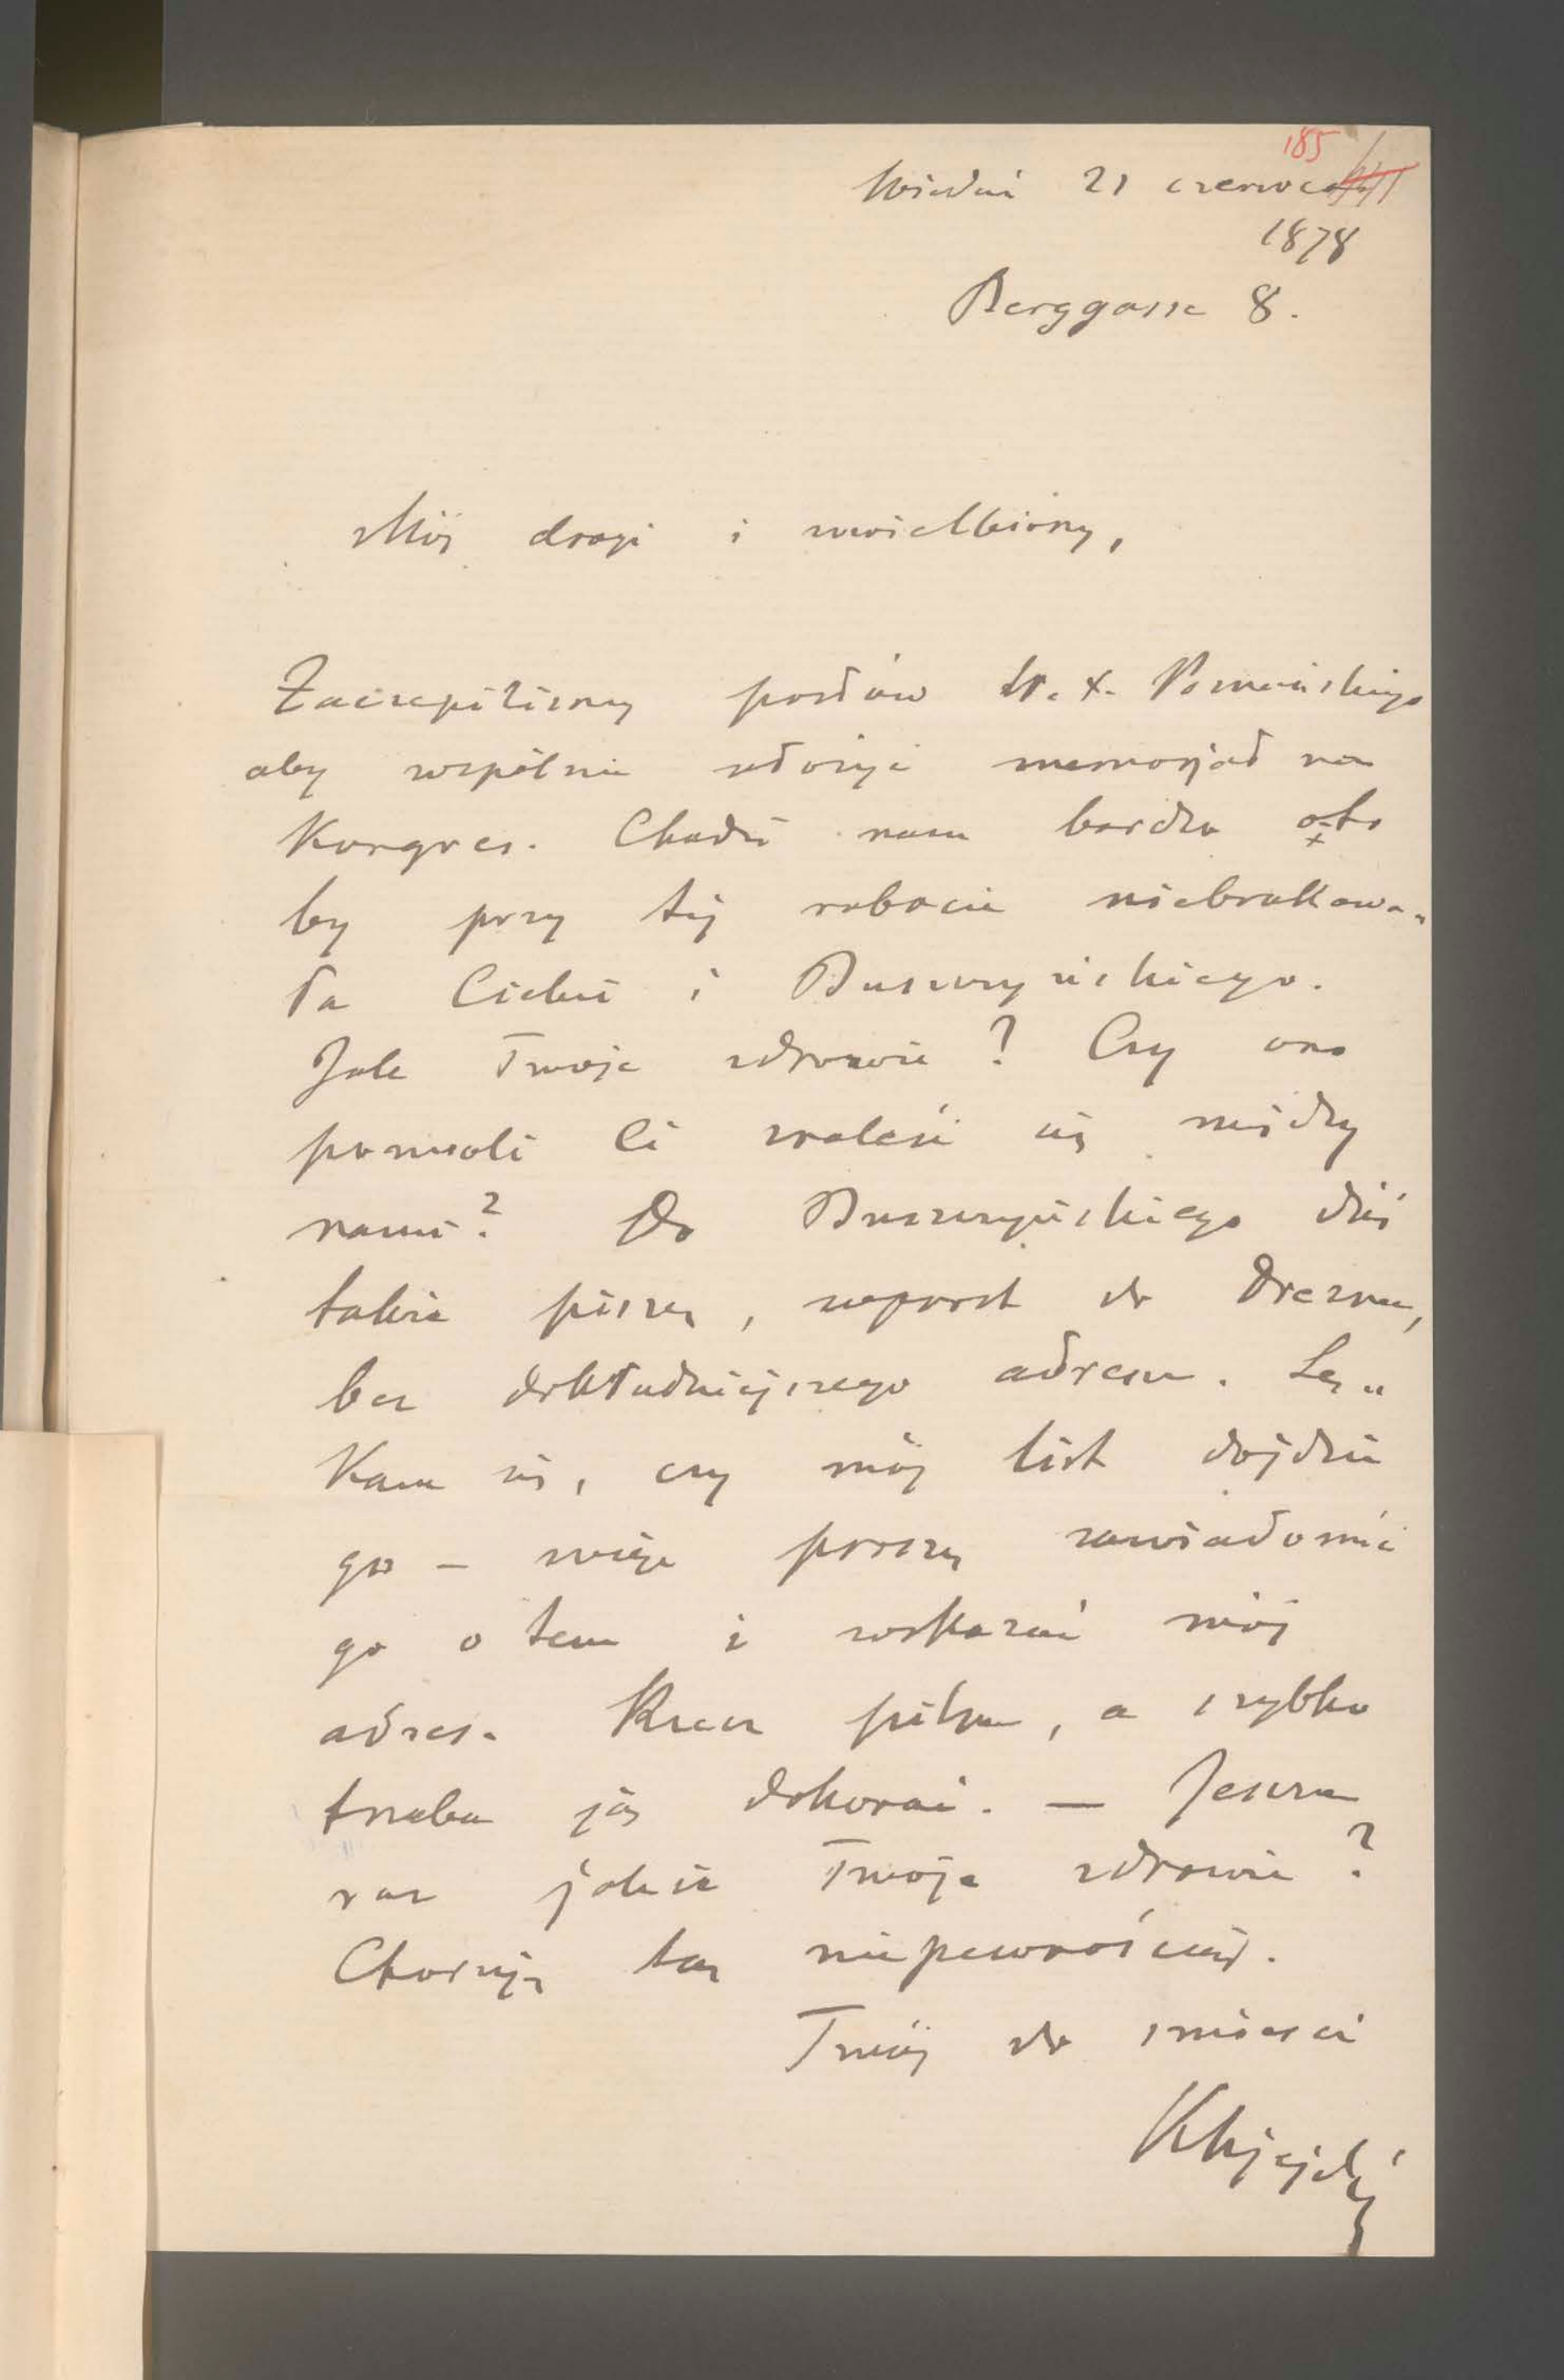 185
Wiedeń 21 czerwca
1878
Berggasse 8.
Mój drogi i uwielbiony,
Zaczepiliśmy posłów W. X. Poznańskiego
aby wspólnie ułożyć memorjał na
Kongres. Chodzi nam bardzo oto
by przy tej robocie niebrakowa„
ła Ciebie i Buszczyńskiego.
Jak Twoje zdrowie? Czy ono
pozwoli Ci znaleść się między
nami? Do Buszczyńskiego dziś
także piszę, wprost do Drezna,
bez dokładniejszego adresu. Lę„
kam się, czy mój list dojdzie
go – więc proszę zawiadomić
go o tem i wskazać mój
adres. Rzecz pilna, a szybko
trzeba ją dokonać. — Jeszcze
raz jakie Twoje zdrowie?
Choruję tą niepewnością.
Twój do śmierci